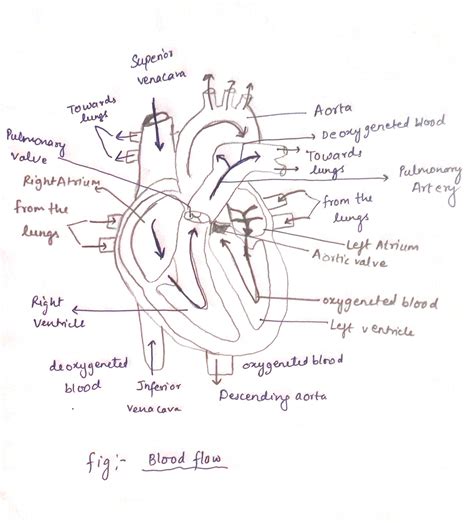 Superior
venacava
Towards
lungs
Aorta
Deoxygeneted blood
Pulmonary
valve
Towards
lungs
Pulmonary
Artery
Right Atrium
from the
lungs
from the
lungs
Left Atrium
Aortic valve
Right
ventricle
oxygeneted blood
Left ventricle
deoxygeneted
blood
Inferior
venacava
oxygeneted blood
Descending aorta
fig:- Blood flow